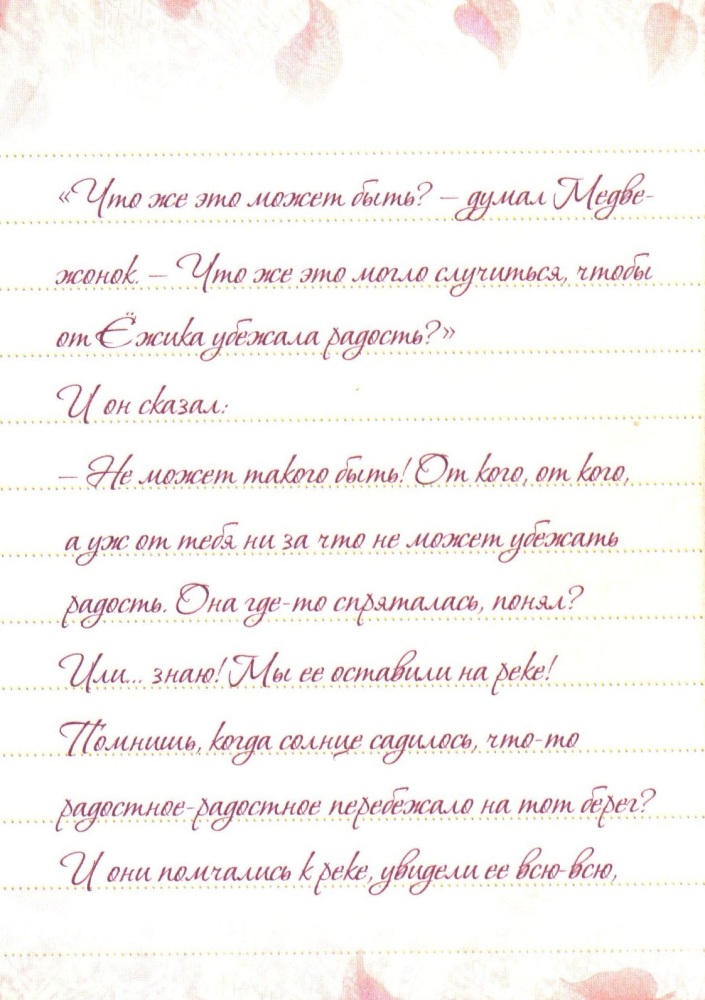 «Что же это может быть? – думал Медве-
жонок. – Что же это могло случиться, чтобы
от Ёжика убежала радость?»
И он сказал:
– Не может такого быть! От кого, от кого,
а уж от тебя ни за что не может убежать
радость. Она где-то спряталась, понял?
Или... знаю! Мы ее оставили на реке!
Помнишь, когда солнце садилось, что-то
радостное-радостное перебежало на тот берег?
И они помчались к реке, увидели ее всю-всю,